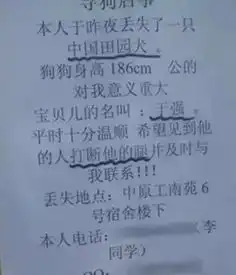 寻狗启事
本人于昨夜丢失了一只
中国田园犬。
狗狗身高186cm 公的
对我意义重大
宝贝儿的名叫:王强。
平时十分温顺 希望见到他
的人打断他的腿并及时与
我联系!!!
丢失地点:中原工南苑6
号宿舍楼下
本人电话: (李
同学)
QQ: